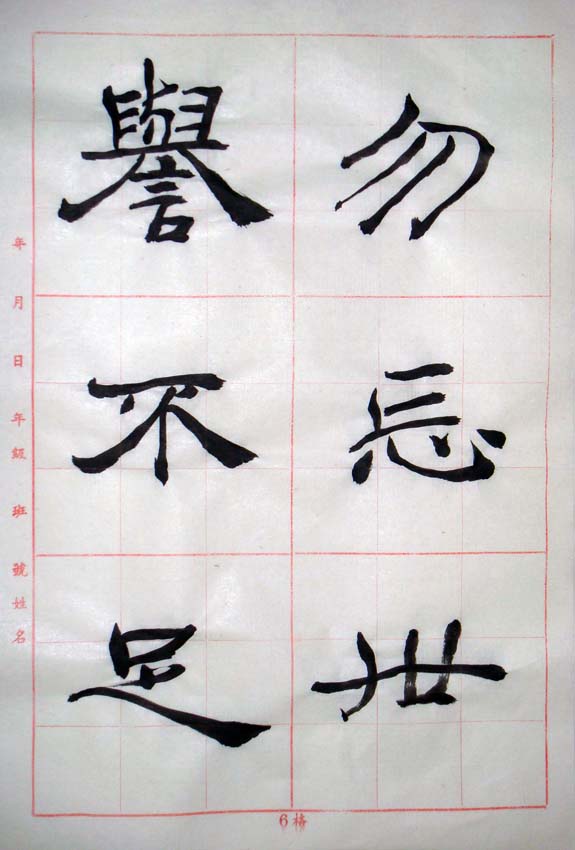 勿忘世
譽不足
年 月 日 年級 班 號 姓名
6格